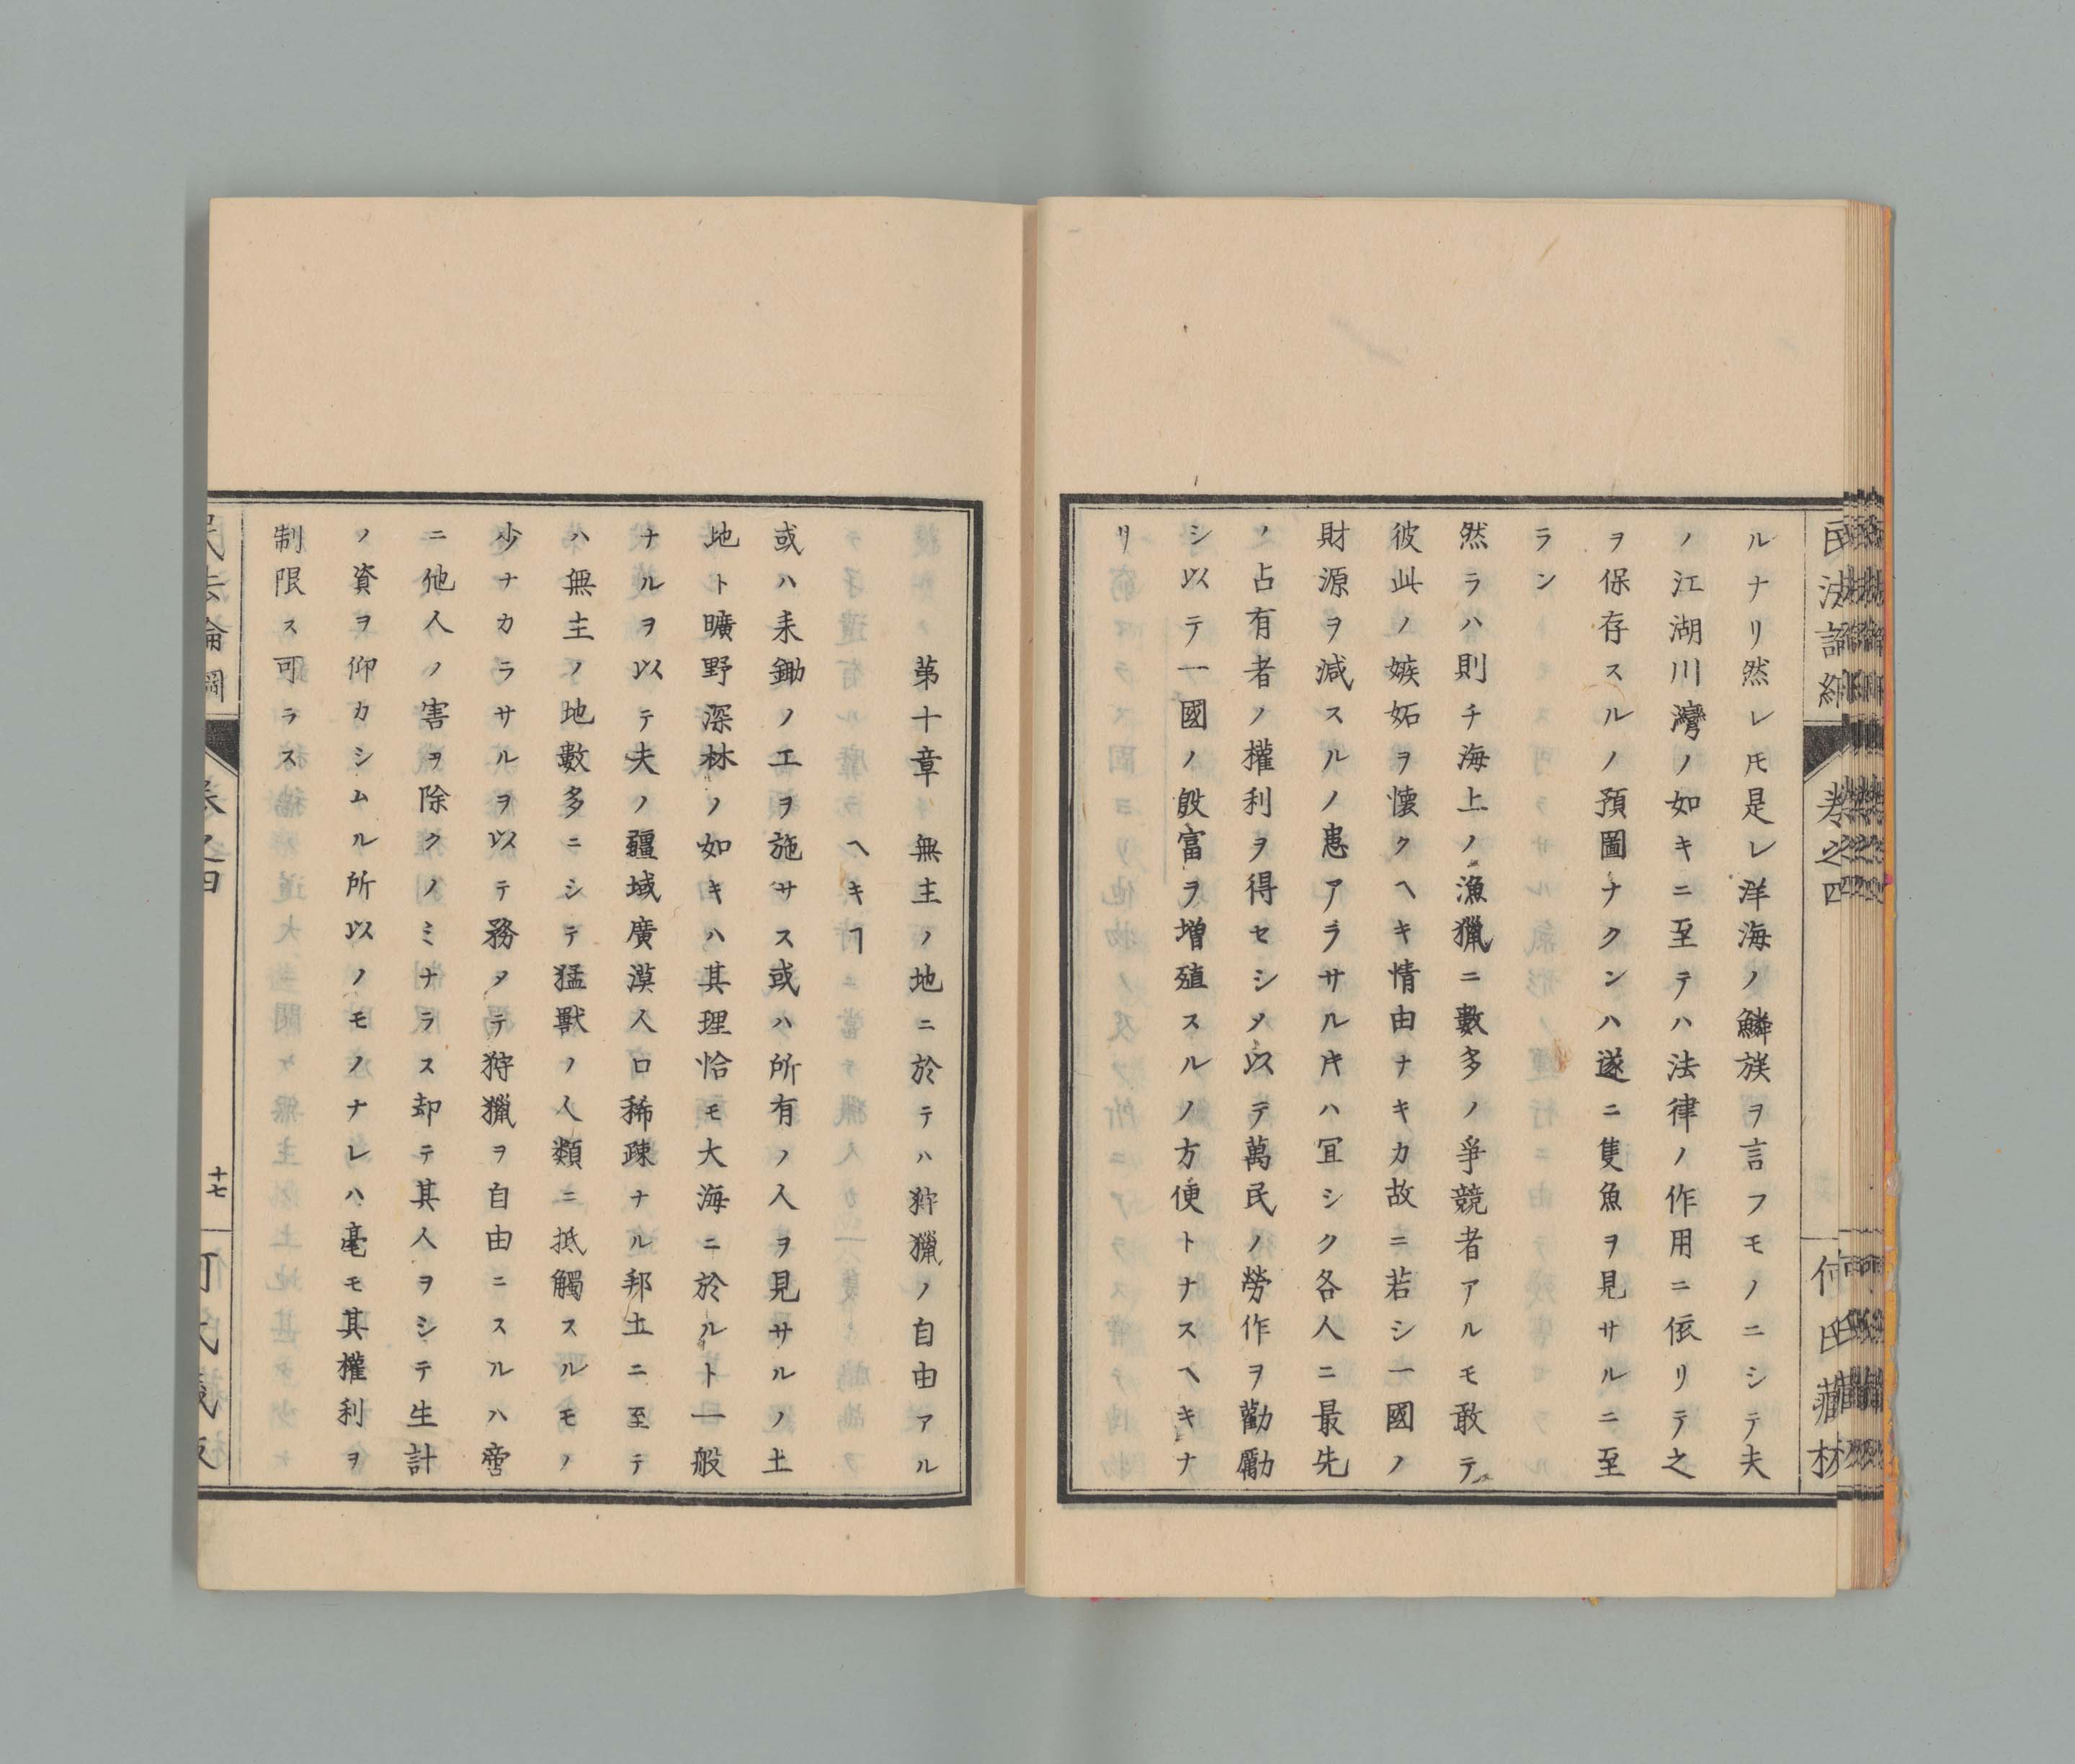 民法論綱 卷之四 何氏藏板
ルナリ然レ𪜈是レ洋海ノ鱗族ヲ言フモノニシテ夫
ノ江湖川灣ノ如キニ至テハ法律ノ作用ニ依リテ之
ヲ保存スルノ預圖ナクンハ遂ニ隻魚ヲ見サルニ至
ラン
然ラハ則チ海上ノ漁獵ニ數多ノ爭競者アルモ敢テ
彼此ノ嫉妬ヲ懐クヘキ情由ナキカ故ニ若シ一國ノ
財源ヲ減スルノ患アラサル𪜈ハ冝シク各人ニ最先
ノ占有者ノ權利ヲ得セシメ以テ萬民ノ勞作ヲ勸勵
シ以テ一國ノ殷富ヲ増殖スルノ方便トナスヘキナ
リ
第十章 無主ノ地ニ於テハ狩獵ノ自由アル
ヘキヿ
或ハ耒鋤ノ工ヲ施サス或ハ所有ノ人ヲ見サルノ土
地ト曠野深林ノ如キハ其理恰モ大海ニ於ルト一般
ナルヲ以テ夫ノ疆域廣漠人口稀疎ナル邦土ニ至テ
ハ無主ノ地數多ニシテ猛獸ノ人類ニ抵觸スルモノ
少ナカラサルヲ以テ務メテ狩獵ヲ自由ニスルハ啻
ニ他人ノ害ヲ除クノミナラス却テ其人ヲシテ生計
ノ資ヲ仰カシムル所以ノモノナレハ毫モ其權利ヲ
制限ス可ラス
民法論綱 卷之四 十七 何氏藏板